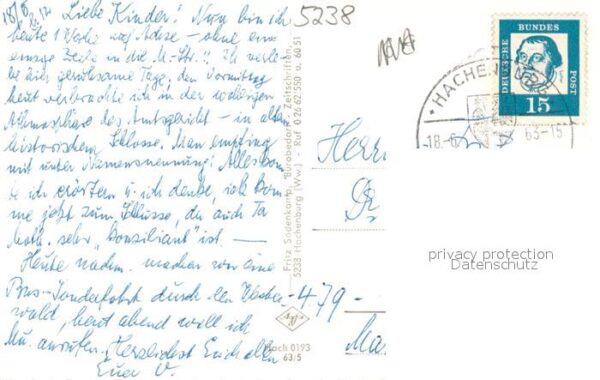 18/6.
Liebe Kinder! Nun bin ich
heute 1 Woche auf Achse – ohne eine
einzige Zeile in die M.-Str.!! Ich verle-
be hier geruhsame Tage, den Vormittag
heut verbrachte ich in der
Atmosphäre des Amtsgericht – in alten
historischen Schlosse. Man empfing
mich unter Namensnennung! Alles
ich erörtern u. ich denke, ich kom-
me jetzt zum Schlusse, da auch
sehr "konziliant" ist. —
Heute nachm. machen wir eine
Bus-Sonderfahrt durch den Wester-
wald, heut abend will ich
Mu. anrufen. Herzlichst Euch allen
Euer V.
5238
Fritz Südenkamp, Bürobedarf, Zeitschriften,
5238 Hachenburg (Ww.) - Ruf 0 26 62 550 u. 60 51
Agfa
Hach 0193
63/5
Herr
Dr
479
Ma
DEUTSCHE BUNDESPOST
15
HACHENBURG
18.-6. 63-15
privacy protection
Datenschutz